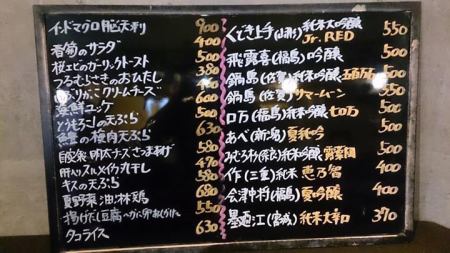 400
春菊のサラダ 500
桜エビのガーリックトースト 380
つるむらさきのおひたし
クリームチーズ 600
海鮮ユッケ 500
とうもろこしの天ぷら 630
鱧の梅肉天ぷら
自家製 明太チーズさつまあげ 580
肝入スルメイカ丸干し 470
キスの天ぷら 580
夏野菜 油淋鶏 680
揚げだし豆腐 550
タコライス 630
くどき上手(山形)純米大吟醸 Jr. RED 550
飛露喜(福島)吟醸 500
鍋島(佐賀)純米吟醸 五百万石 500
鍋島(佐賀)サマームーン 350
ロ万(福島)純米吟醸 七ロ万 500
あべ(新潟)夏純吟 500
純米吟醸 500
作(三重)純米 恵乃智 400
会津中将(福島)夏吟醸 400
墨廼江(宮城)純米大辛口 370